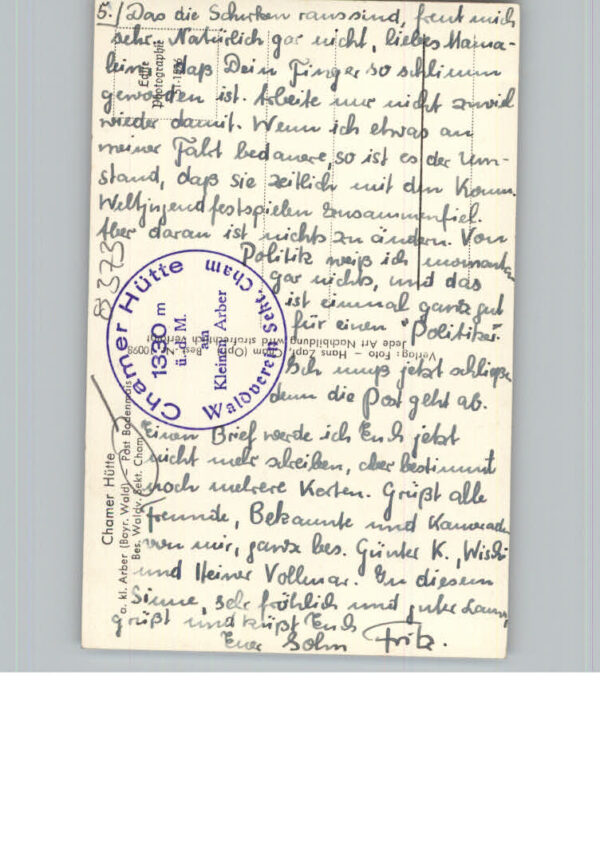 5./ Das die Schurken raus sind, freut mich
sehr. Natürlich gar nicht, liebes Mama-
lein, daß Dein Finger so schlimm
geworden ist. Arbeite nur nicht zuviel
wieder damit. Wenn ich etwas an
meiner Fahrt bedauere, so ist es der Um-
stand, daß sie zeitlich mit den Komm.
Weltjugendfestspielen zusammenfiel.
Aber daran ist nichts zu ändern. Von
Politik weiß ich momentan
gar nichts, und das
ist einmal ganz gut
für einen "Politiker".
Ich muß jetzt schließen
denn die Post geht ab.
Einen Brief werde ich Euch jetzt
nicht mehr schreiben, aber bestimmt
noch mehrere Karten. Grüßt alle
Freunde, Bekannte und Kameraden
von mir, ganz bes. Günter K.,
und Heiner Vollmar. In diesem
Sinne, sehr fröhlich und guter Laune,
grüßt und küßt Euch
Euer Sohn Fritz.
Echte
Photographie
Chamer Hütte
1330 m
ü. d. M.
am
Kleinen Arber
Waldverein Sekt. Cham
8373
Chamer Hütte
a. kl. Arber (Bayr. Wald) — Post Bodenmais
Bes. Waldv. Sekt. Cham
Verlag: Foto - Hans Zapf, Cham (Opf) Best.-Nr.
Jede Art Nachbildung wird strafrechtlich verfolgt